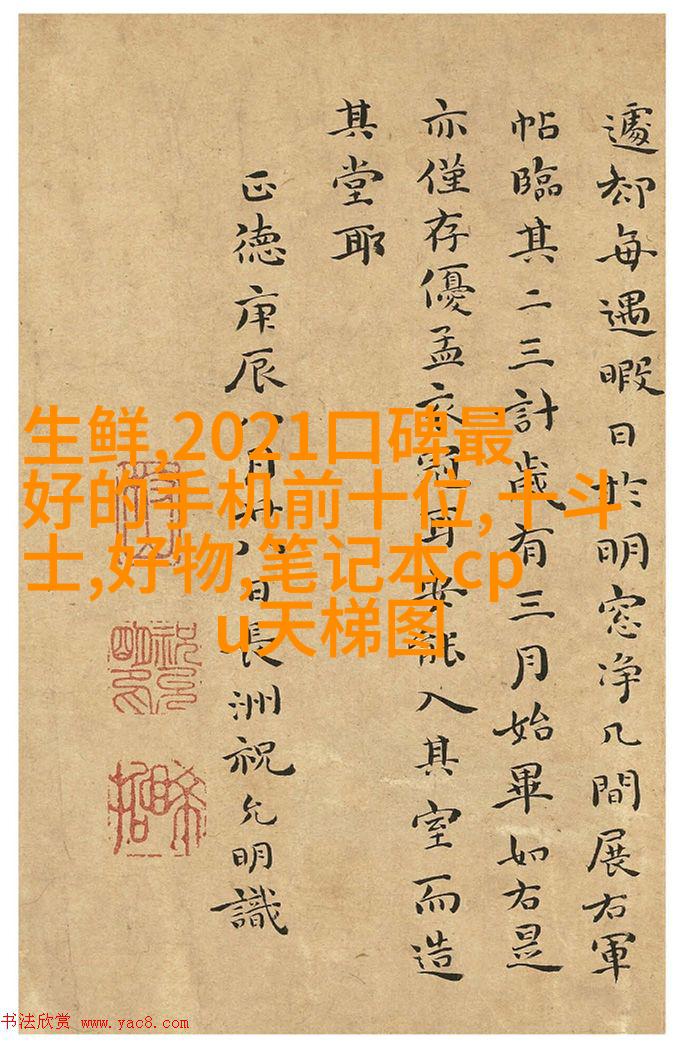 遽却每遇暇日於明窓净几間展右軍
帖臨其二三計歲有三月始畢如右是
亦僅存優孟衣冠耳安能入其室而造
其堂耶
正德庚辰八月廿八日長洲祝允明識
生鲜,2021口碑最
好的手机前十位,十斗
士,好物,笔记本cp
u天梯图
书法欣赏 www.yac8.com